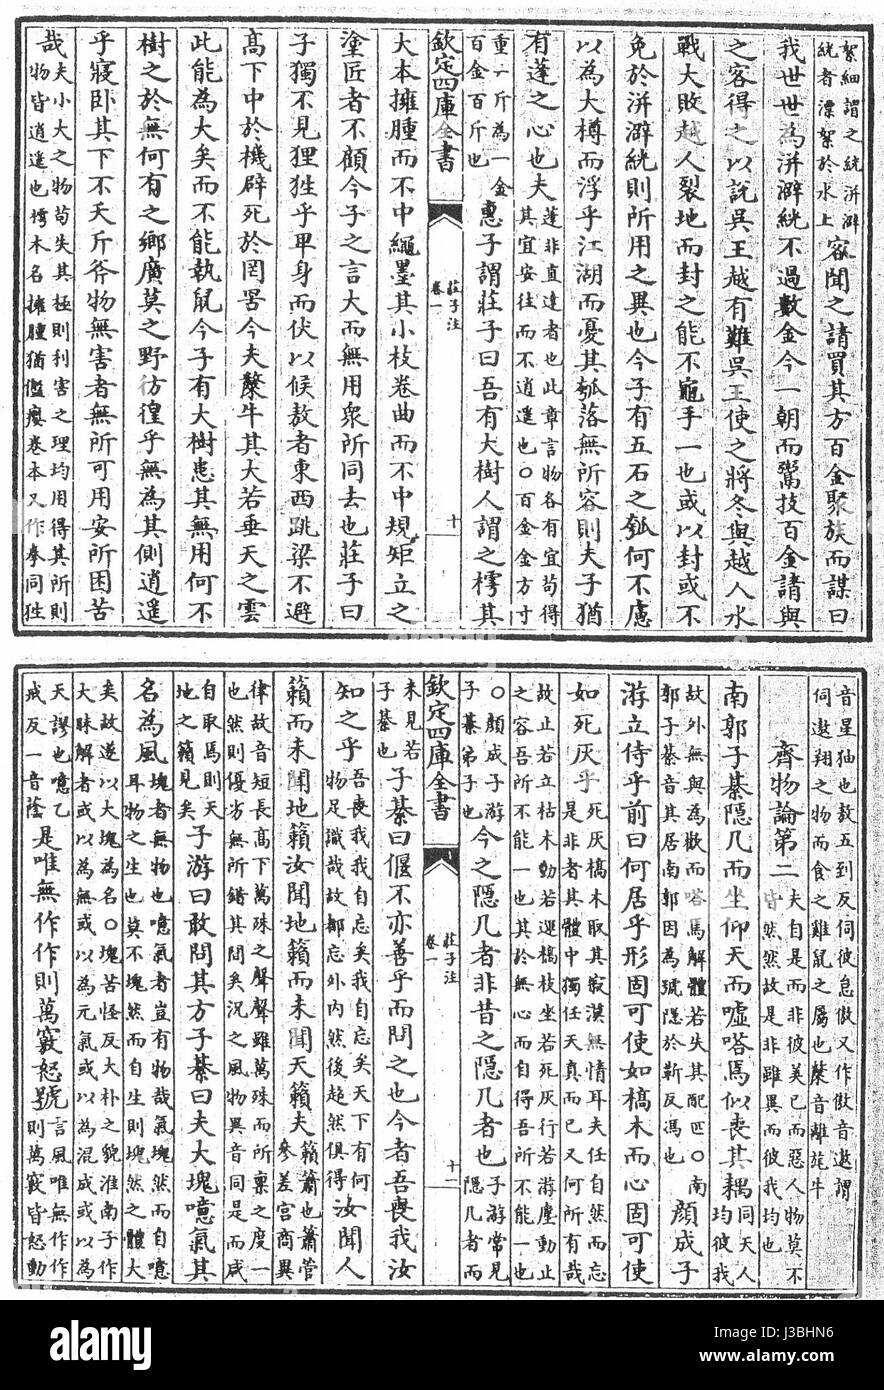 絮細謂之絖洴澼
絖者漂絮於水上
客聞之請買其方百金聚族而謀曰
我世世為洴澼絖不過數金今一朝而鬻技百金請與
之客得之以說吳王越有難吳王使之將冬與越人水
戰大敗越人裂地而封之能不龜手一也或以封或不
免於洴澼絖則所用之異也今子有五石之瓠何不慮
以為大樽而浮乎江湖而憂其瓠落無所容則夫子猶
有蓬之心也夫
蓬非直達者也此章言物各有宜苟得
其宜安往而不逍遥也〇百金金方寸
重一斤為一金
百金百斤也
惠子謂莊子曰吾有大樹人謂之樗其
欽定四庫全書
莊子注
卷一
十
大本擁腫而不中繩墨其小枝卷曲而不中規矩立之
塗匠者不顧今子之言大而無用衆所同去也莊子曰
子獨不見狸狌乎卑身而伏以候敖者東西跳梁不避
髙下中於機辟死於罔罟今夫斄牛其大若垂天之雲
此能為大矣而不能執鼠今子有大樹患其無用何不
樹之於無何有之鄉廣莫之野彷徨乎無為其側逍遥
乎寢卧其下不夭斤斧物無害者無所可用安所困苦
哉
夫小大之物苟失其極則利害之理均用得其所則
物皆逍遥也樗木名擁腫猶傴癭卷本又作拳同狌
音星狖也敖五到反伺彼怠傲又作傲音遨謂
伺遨翔之物而食之雞鼠之屬也斄音離旄牛
齊物論第二
夫自是而非彼美己而惡人物莫不
皆然然故是非雖異而彼我均也
南郭子綦隠几而坐仰天而噓嗒焉似喪其耦
同天人
均彼我
故外無與為歡而嗒焉解體若失其配匹〇南
郭子綦音其居南郭因為號隠於靳反馮也
顔成子
游立侍乎前曰何居乎形固可使如槁木而心固可使
如死灰乎
死灰槁木取其寂漠無情耳夫任自然而忘
是非者其體中獨任天真而已又何所有哉
故止若立枯木動若運槁枝坐若死灰行若游塵動止
之容吾所不能一也其於無心而自得吾所不能一也
〇顔成子游
子綦弟子也
今之隠几者非昔之隠几者也
子游常見
隠几者而
欽定四庫全書
莊子注
卷一
十一
未見若
子綦也
子綦曰偃不亦善乎而問之也今者吾喪我汝
知之乎
吾喪我我自忘矣我自忘矣天下有何
物足識哉故都忘外内然後超然俱得
汝聞人
籟而未聞地籟汝聞地籟而未聞天籟夫
籟簫也簫管
參差宫商異
律故音短長髙下萬殊之聲聲雖萬殊而所稟之度一
也然則優劣無所錯其間矣况之風物異音同是而咸
自取焉則天
地之籟見矣
子游曰敢問其方子綦曰夫大塊噫氣其
名為風
塊者無物也噫氣者豈有物哉氣塊然而自噫
耳物之生也莫不塊然而自生則塊然之體大
矣故遂以大塊為名〇塊苦怪反大朴之貌淮南子作
大昧解者或以為無或以為元氣或以為混成或以為
天謬也噫乙
戒反一音蔭
是唯無作作則萬竅怒號
言風唯無作作
則萬竅皆怒動
alamy
Image ID: J3BHN6
www.alamy.com